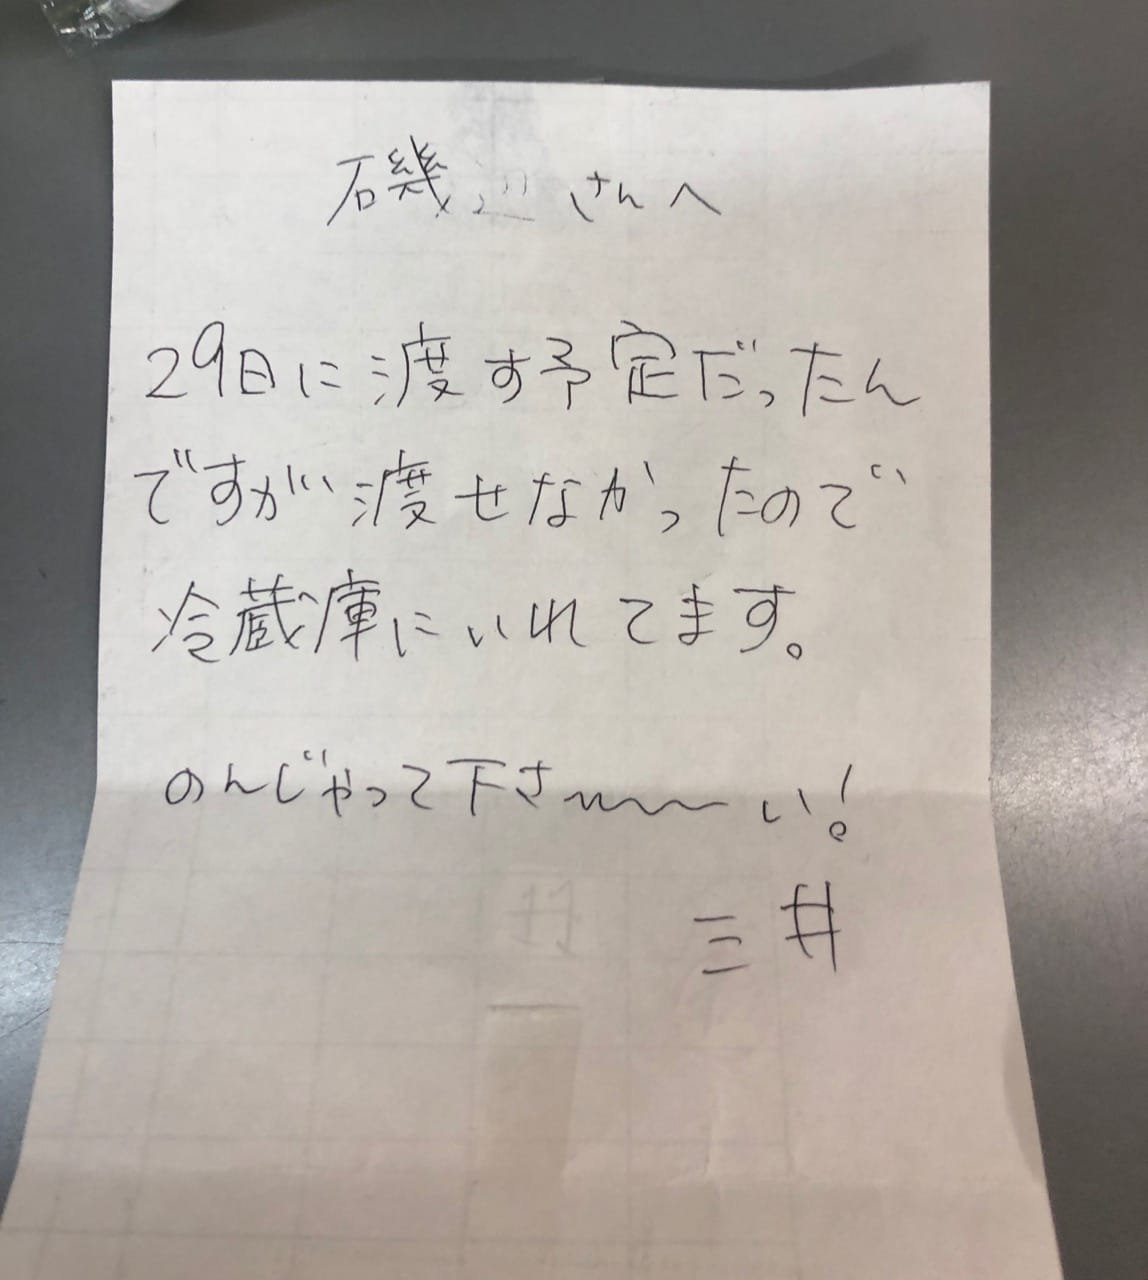 磯辺さんへ
29日に渡す予定だったん
ですが渡せなかったので
冷蔵庫にいれてます。
のんじゃって下さ〜〜〜い!
三井